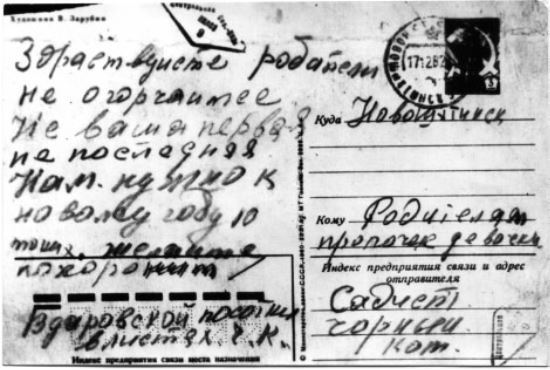 Художник В. Зарубин
Здраствуйте родатели
не огорчайтесе
Не ваша первая
не последняя
Нам. нужно к
новому году 10
желаите
похоронит
Вдаровской посатки
влистях. Ч. К.
Индекс предприятия связи места назначения
17 12 82
Куда Новошахтинск
Кому Родителям
пропачек девочки
Индекс предприятия связи и адрес
отправителя
Садист
чорный
кот.